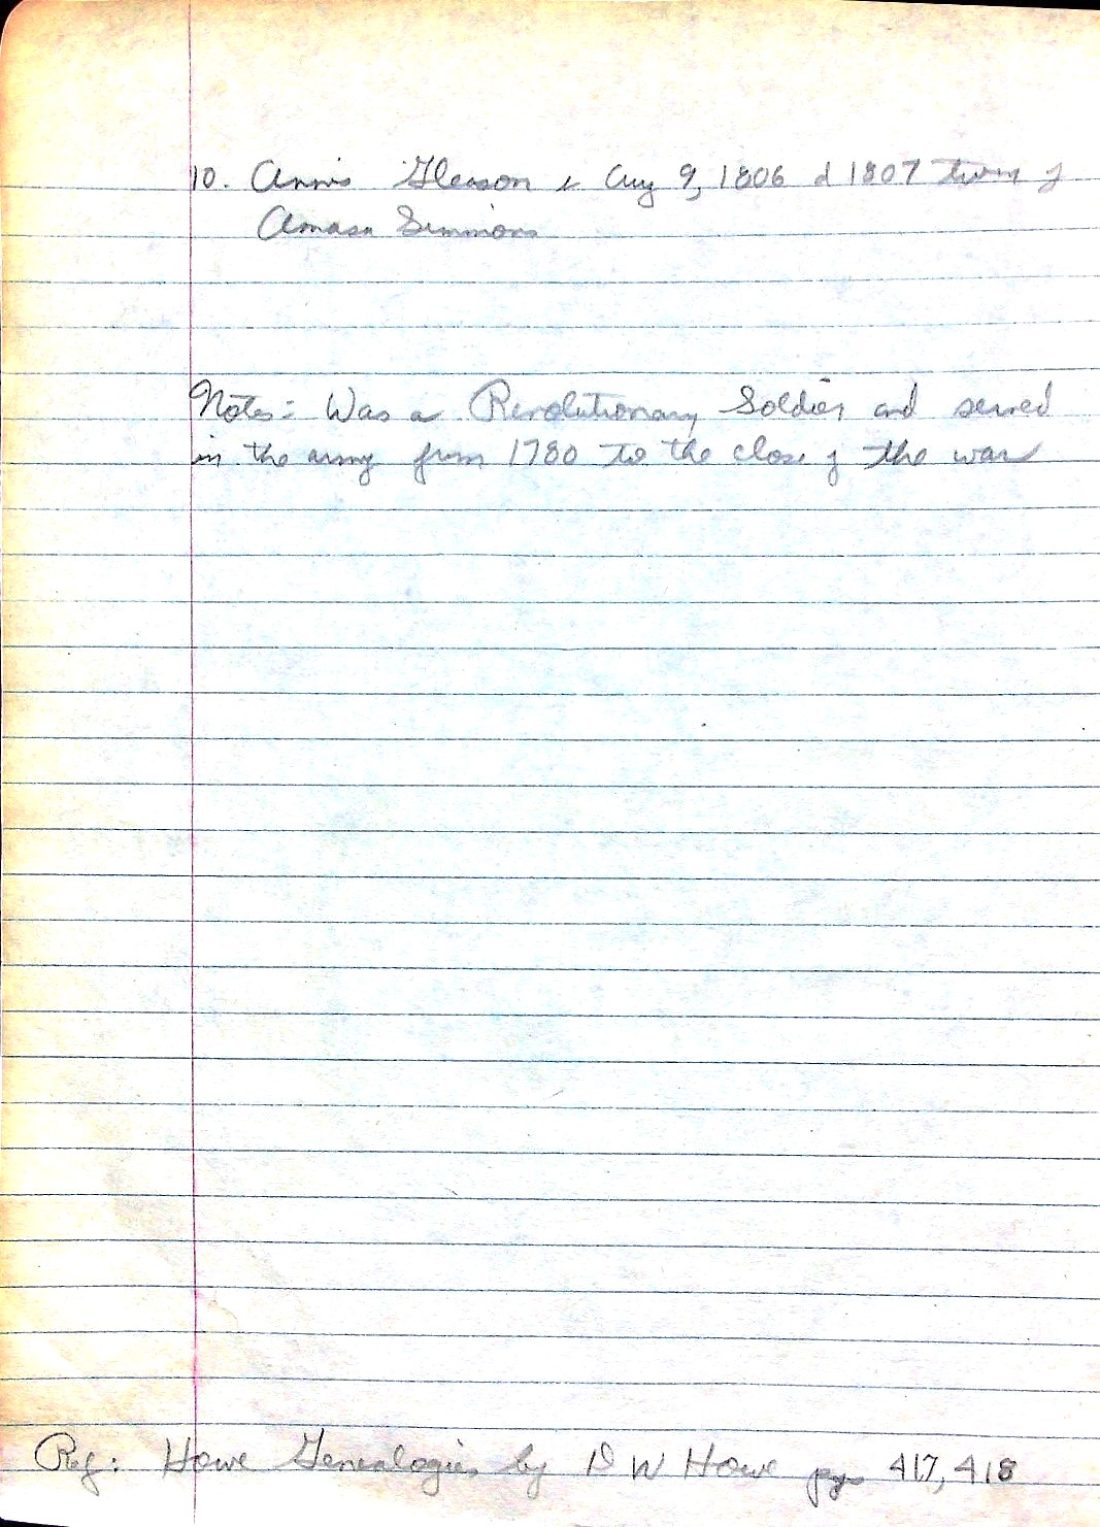 10. Annis Gleason b Aug 9, 1806 d 1807 twin of
Amasa Simmons
Notes: Was a Revolutionary Soldier and served
in the army from 1780 to the close of the war
Ref: Howe Genealogies by D W Howe pgs 417, 418